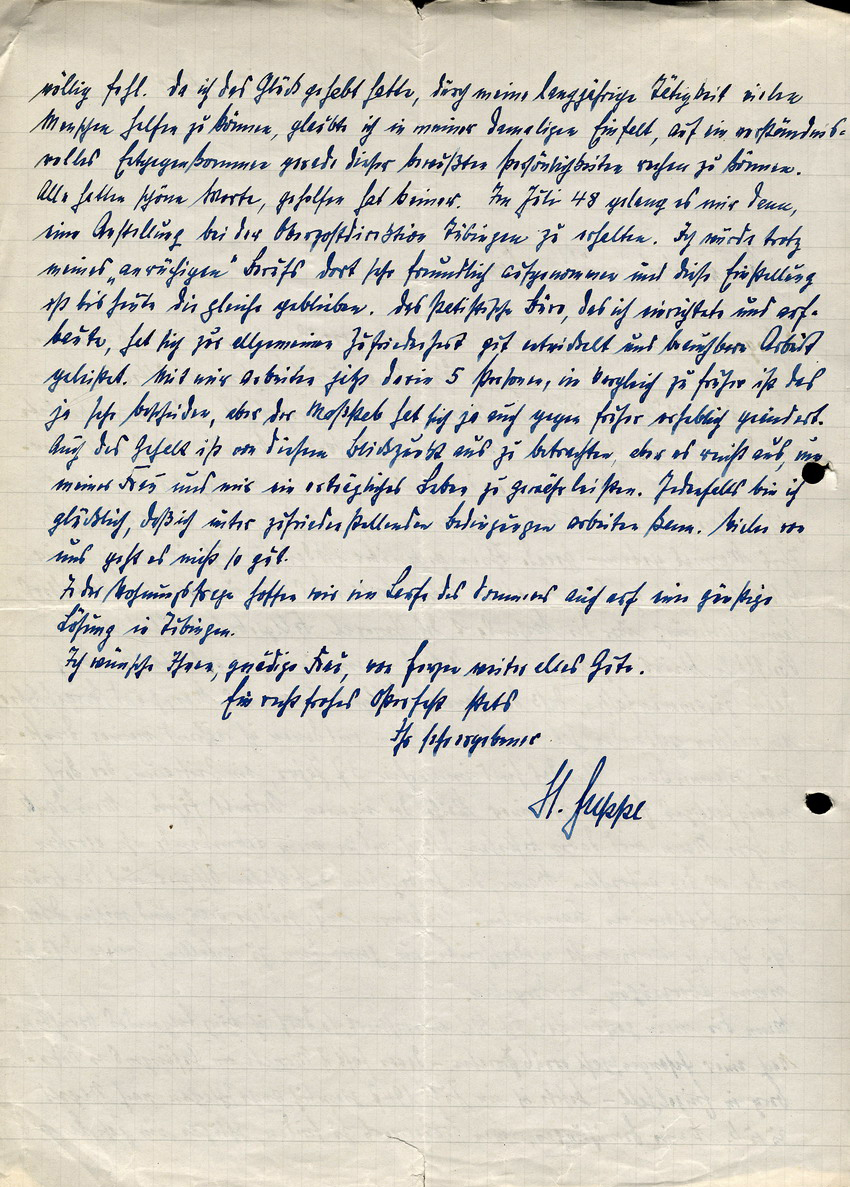 völlig fehl. Da ich das Glück gehabt hatte, durch meine langjährige Tätigkeit vielen
Menschen helfen zu können, glaubte ich in meiner damaligen Einfalt, auf ein verständnis-
volles Entgegenkommen gerade dieser bewußten Persönlichkeiten rechnen zu können.
Alle hatten schöne Worte, geholfen hat keiner. Im Juli 48 gelang es mir dann,
eine Anstellung bei der Oberpostdirektion Tübingen zu erhalten. Ich wurde trotz
meines „anrüchigen" Berufs dort sehr freundlich aufgenommen und diese Einstellung
ist bis heute die gleiche geblieben. Das statistische Büro, das ich einrichtete und auf-
baute, hat sich zur allgemeinen Zufriedenheit gut entwickelt und brauchbare Arbeit
geleistet. Mit mir arbeiten jetzt darin 5 Personen, im Vergleich zu früher ist das
ja sehr bescheiden, aber der Maßstab hat sich ja auch gegen früher erheblich geändert.
Auch das Gehalt ist von diesem Blickpunkt aus zu betrachten, aber es reicht aus, um
meiner Frau und mir ein erträgliches Leben zu gewährleisten. Jedenfalls bin ich
glücklich, daß ich unter zufriedenstellenden Bedingungen arbeiten kann. Vielen von
uns geht es nicht so gut.
In der Wohnungsfrage hoffen wir im Laufe des Sommers auch auf eine günstige
Lösung in Tübingen.
Ich wünsche Ihnen, gnädige Frau, von Herzen weiter alles Gute.
Ein recht frohes Osterfest stets
Ihr sehr ergebener
H.